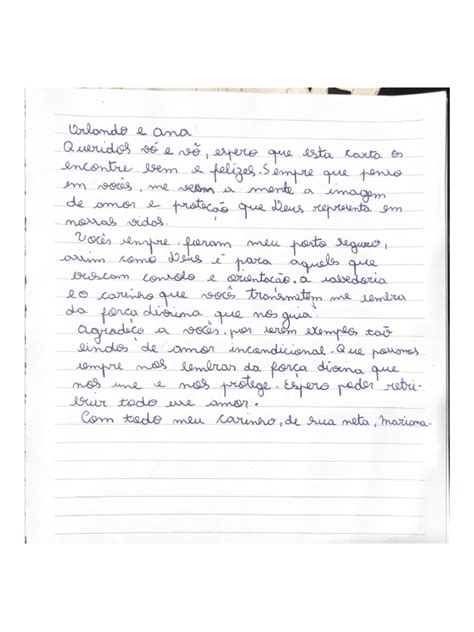 Orlando e ana
Queridos vó e vô, espero que esta carta os
encontre bem e felizes. Sempre que penso
em vocês, me vem a mente a imagem
de amor e proteção que Deus representa em
nossas vidas.
Vocês sempre foram meu porto seguro,
assim como Deus é para aqueles que
buscam consolo e orientação. a sabedoria
e o carinho que vocês transmitem me lembra
da força divina que nos guia.
Agradeço a vocês por serem exemplos tão
lindos de amor incondicional. Que possamos
sempre nos lembrar da força divina que
nos une e nos protege. Espero poder retri-
buir todo esse amor.
Com todo meu carinho, de sua neta, Mariana.